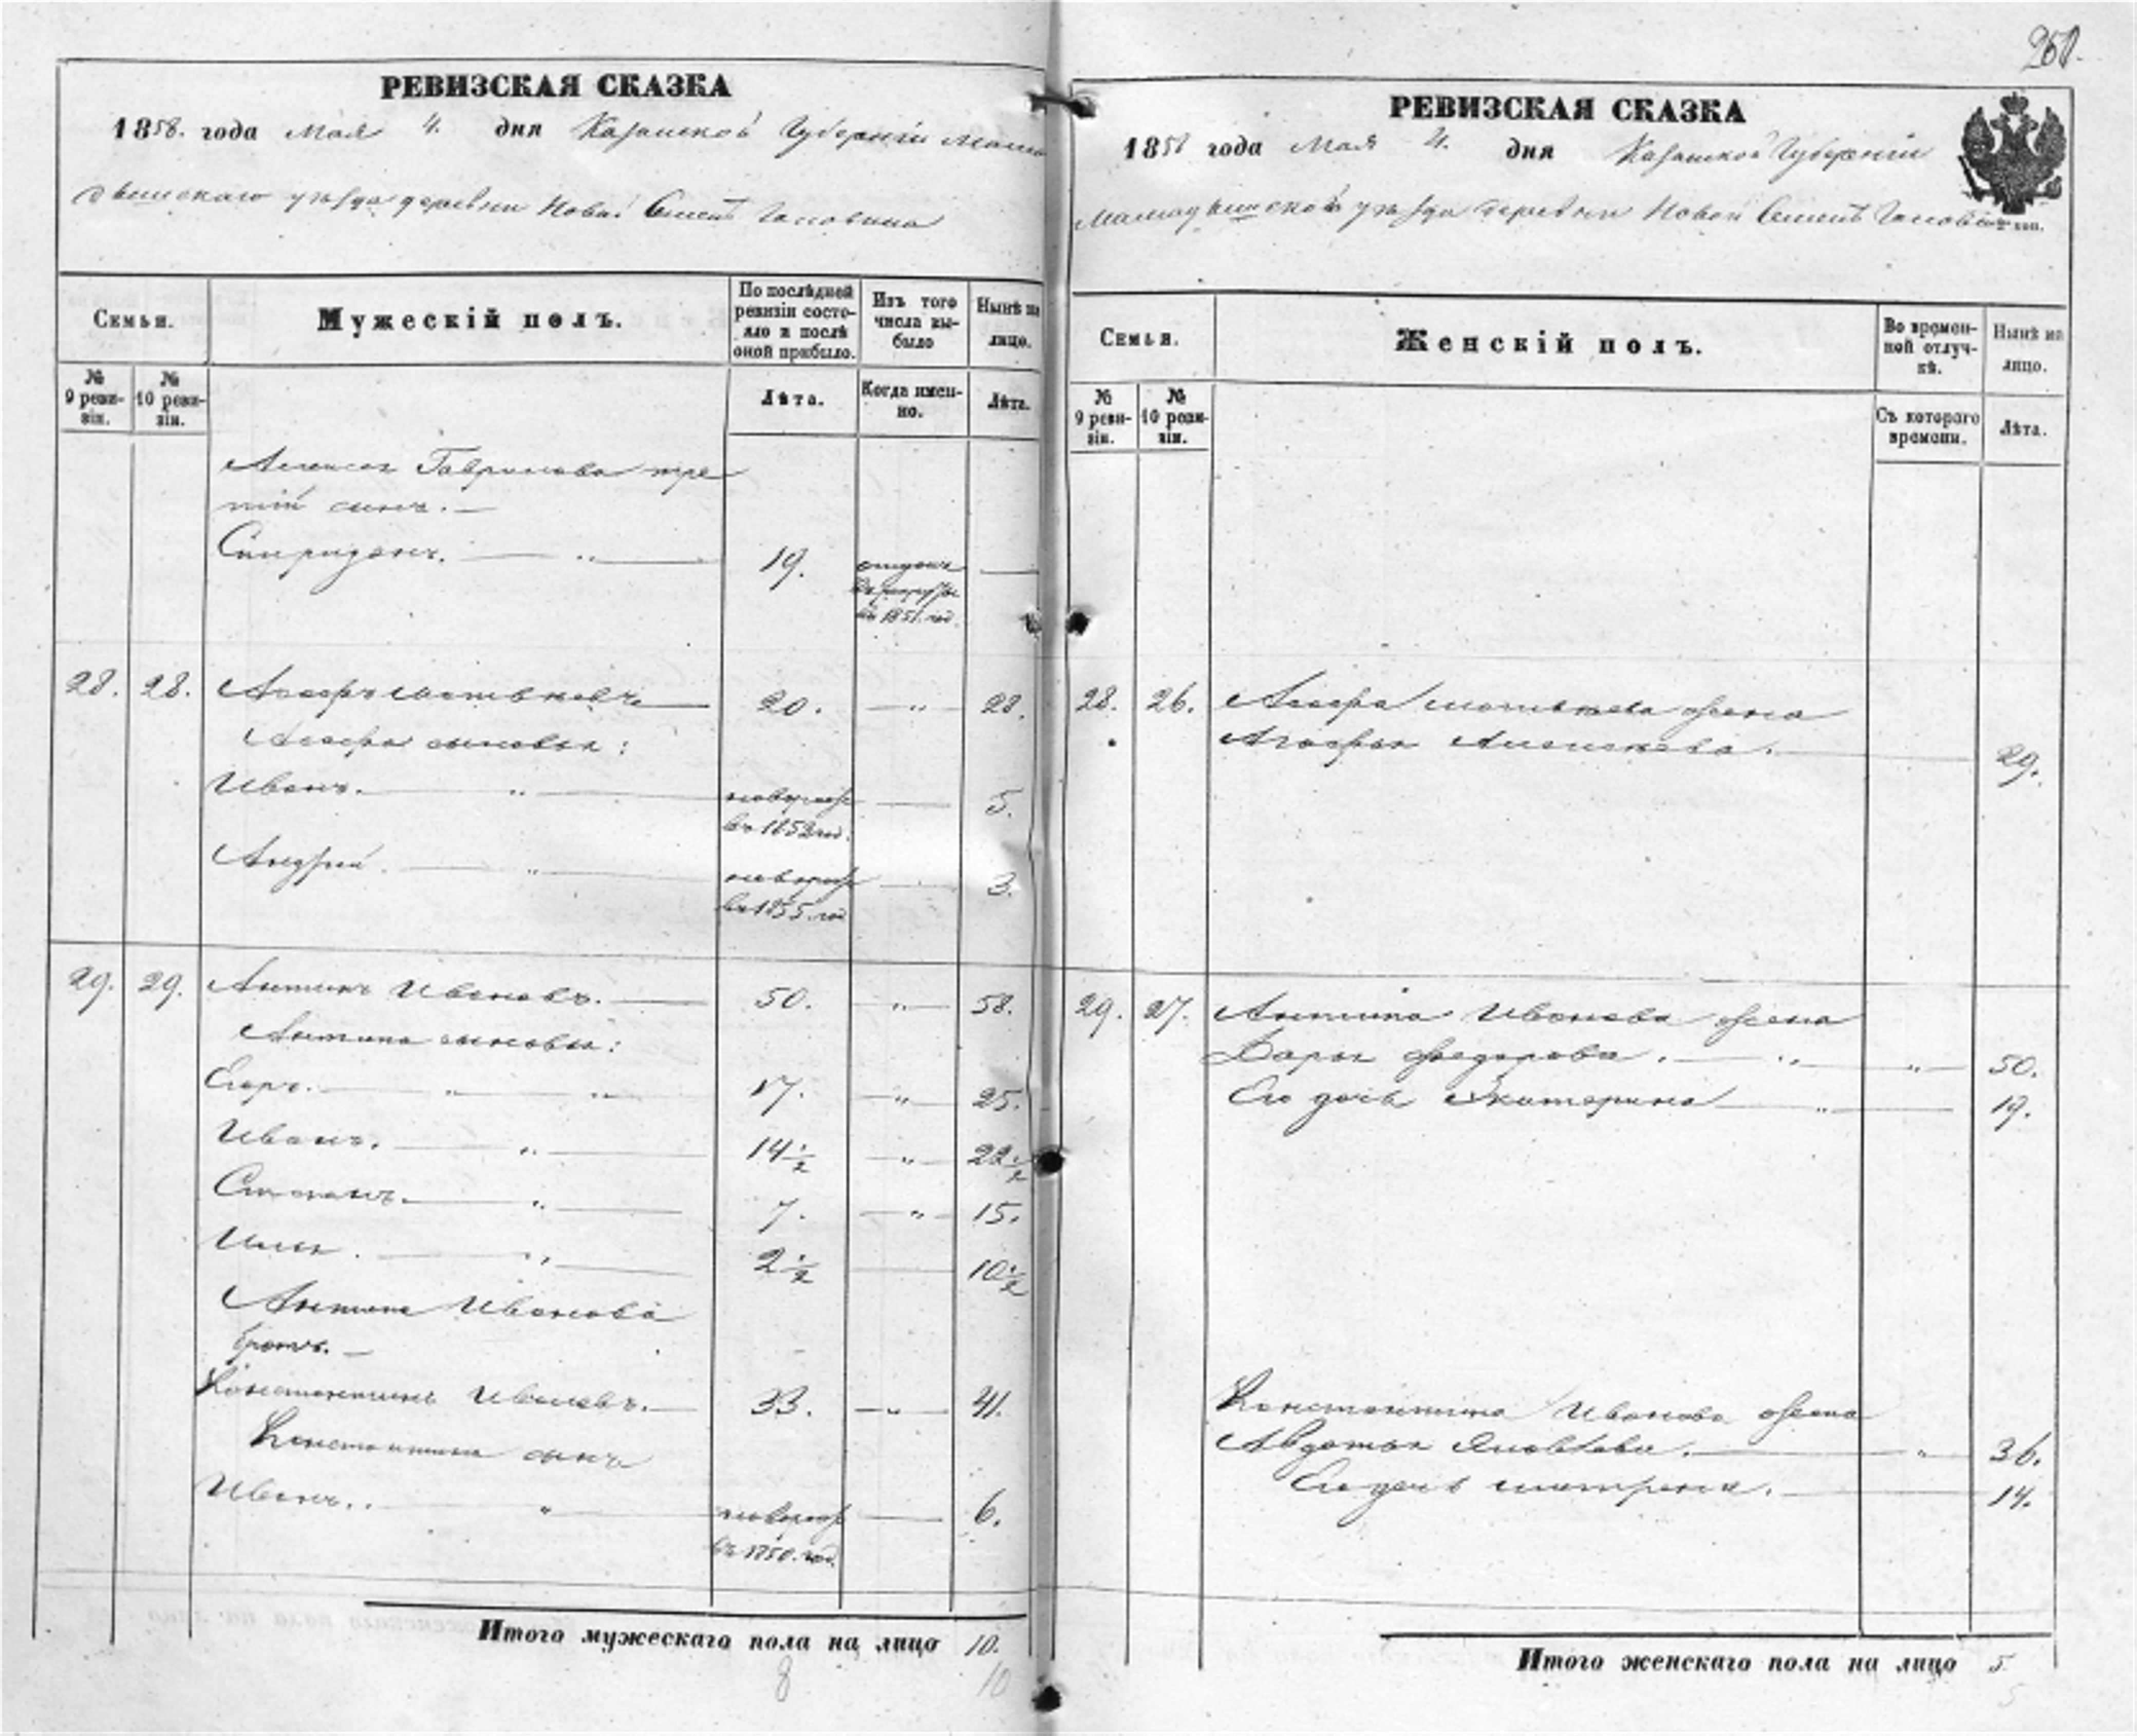 251.
РЕВИЗСКАЯ СКАЗКА
1858. года Мая 4. дня Казанской Губернии Мама
дышскаго уезда деревни Новой
Семьи.
Мужескій полъ.
По послѣдней ревизіи состояло и послѣ оной прибыло.
Изъ того числа выбыло
Нынѣ на лицо.
№ 9 ревизіи.
№ 10 ревизіи.
Лѣта.
Когда именно.
Лѣта.
Гаврилова тре
тій сынъ.
Спиридонъ. 19. отданъ
въ рекруты
въ 1851. год.
28. 28. 20. 28.
сыновья:
Иванъ. новорож 5.
въ 1852 год.
Андрей. новорож 3.
въ 1855. год
29. 29. Антипъ Ивановъ. 50. 58.
Антипа сыновья:
Егоръ. 17. 25.
Иванъ. 14 1/2 22 1/2
Степанъ. 7. 15.
Илья. 2 1/2 10 1/2
Антипа Иванова
братъ.
Константинъ Ивановъ. 33. 41.
Константина сынъ
Иванъ. новорож 6.
въ 1850. год.
Итого мужескаго пола на лицо 10.
8 10
РЕВИЗСКАЯ СКАЗКА
1858 года Мая 4. дня Казанской Губерніи
Мамадышской уезда деревни Новой
Семьи.
Женскій полъ.
Во временной отлучкѣ.
Нынѣ на лицо.
№ 9 ревизіи.
№ 10 ревизіи.
Съ котораго времени.
Лѣта.
28. 26. жена
29.
29. 27. Антипа Иванова жена
Дарья Федорова. 50.
Его дочь Екатерина 19.
Константина Иванова жена
Авдотья Яковлева. 36.
Его дочь 14.
Итого женскаго пола на лицо 5
5